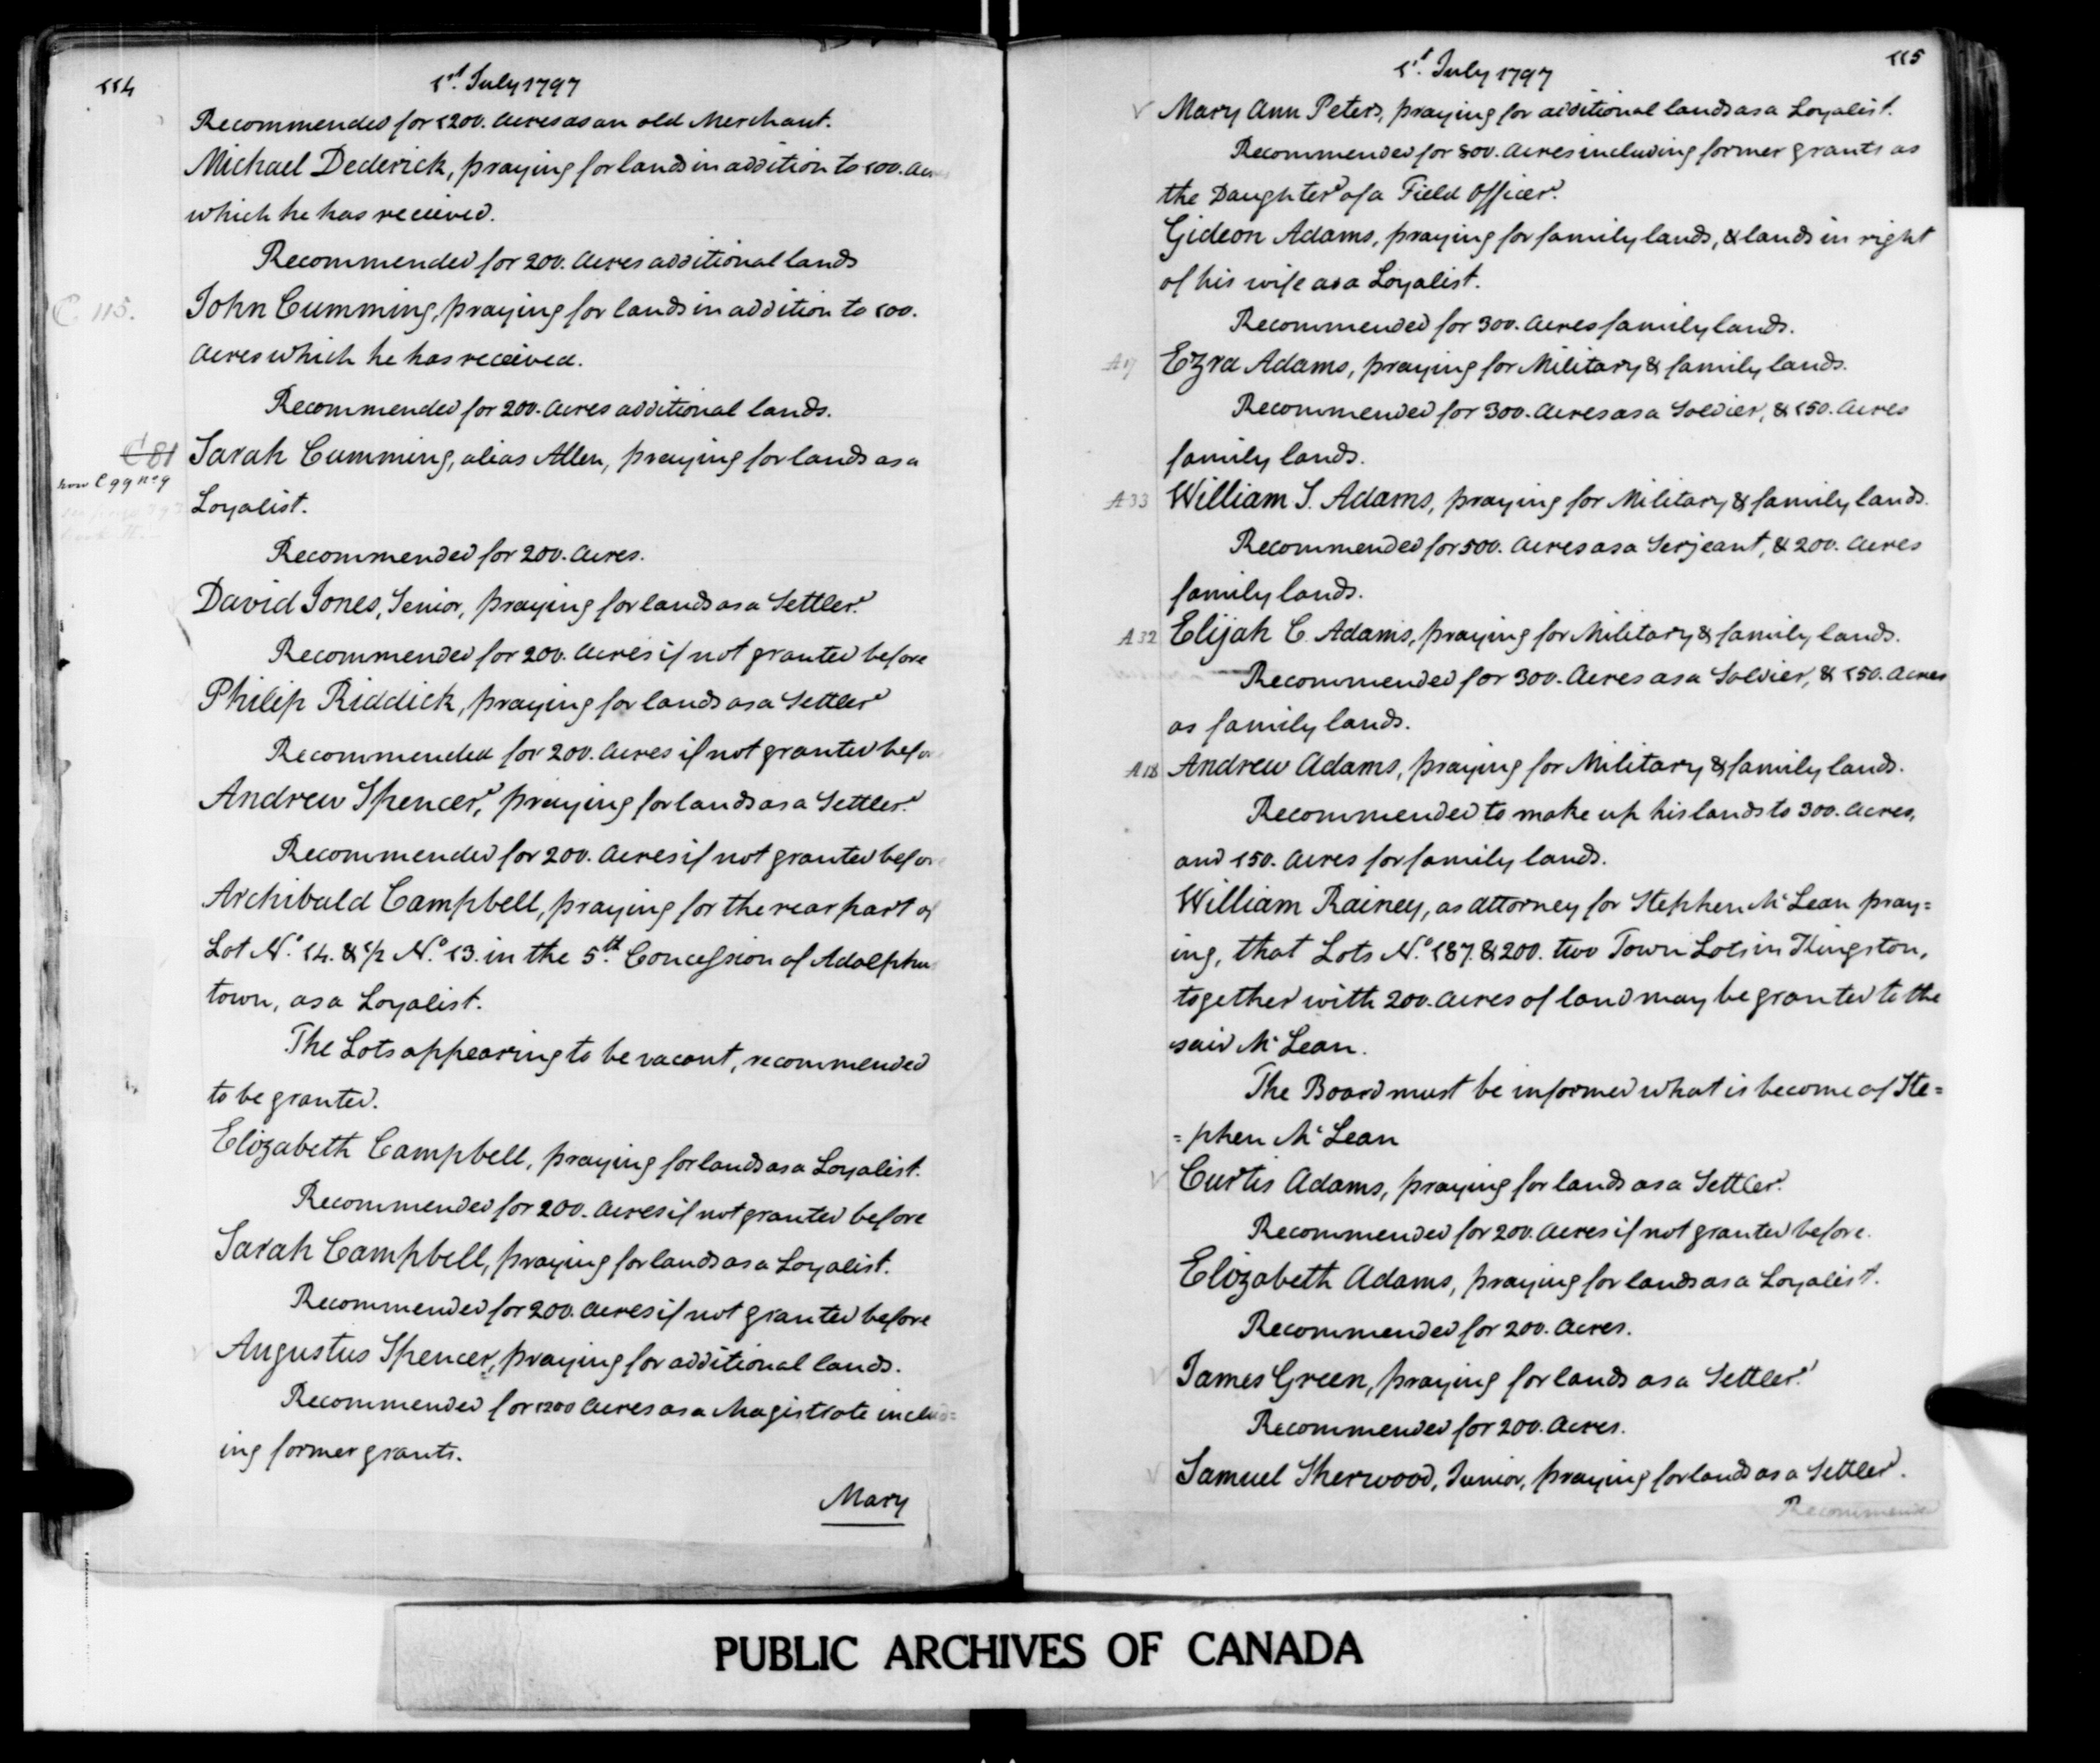 114
1st July 1797
Recommended for 1200. Acres as an old Merchant.
Michael Dederick, praying for lands in addition to 100. Acres
which he has received.
Recommended for 200. Acres additional lands
C 115.
John Cumming, praying for lands in addition to 100.
Acres which he has received.
Recommended for 200. Acres additional lands.
C 81
Sarah Cumming, alias Allen, praying for lands as a
now C 99 No 9
Loyalist.
Recommended for 200. Acres.
David Jones, Senior, praying for lands as a Settler.
Recommended for 200. Acres if not granted before
Philip Riddick, praying for lands as a Settler
Recommended for 200. Acres if not granted befor
Andrew Spencer, praying for lands as a Settler.
Recommended for 200. Acres if not granted before
Archibald Campbell, praying for the rear part of
Lot No. 14. & 1/2 No. 13. in the 5th Concession of Adolphu
town, as a Loyalist.
The Lots appearing to be vacant, recommended
to be granted.
Elizabeth Campbell, praying for lands as a Loyalist.
Recommended for 200. Acres if not granted before
Sarah Campbell, praying for lands as a Loyalist.
Recommended for 200. Acres if not granted before
Augustus Spencer, praying for additional lands.
Recommended for 1200 Acres as a Magistrate includ=
ing former grants.
Mary
115
1st. July 1797
Mary Ann Peters, praying for additional lands as a Loyalist.
Recommended for 800. Acres including former grants as
the Daughter of a Field Officer.
Gideon Adams, praying for family lands, & lands in right
of his wife as a Loyalist.
Recommended for 300. Acres family lands.
A 17
Ezra Adams, praying for Military & family lands.
Recommended for 300. Acres as a Soldier, & 150. Acres
family lands.
A 33
William S. Adams, praying for Military & family lands.
Recommended for 500. Acres as a Serjeant, & 200. Acres
family lands.
A 32
Elijah C. Adams, praying for Military & family lands.
Recommended for 300. Acres as a Soldier, & 150. Acres
as family lands.
A 18
Andrew Adams, praying for Military & family lands.
Recommended to make up his lands to 300. Acres,
and 150. Acres for family lands.
William Rainey, as attorney for Stephen McLean pray=
ing, that Lots No. 187. & 200. two Town Lots in Kingston,
together with 200. Acres of land may be granted to the
said McLean.
The Board must be informed what is become of Ste=
=phen McLean
Curtis Adams, praying for lands as a Settler.
Recommended for 200. Acres if not granted before.
Elizabeth Adams, praying for lands as a Loyalist.
Recommended for 200. Acres.
James Green, praying for lands as a Settler.
Recommended for 200. Acres.
Samuel Sherwood, Junior, praying for lands as a Settler.
Recommended
PUBLIC ARCHIVES OF CANADA